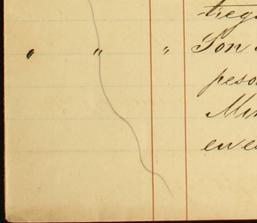 treg
" " " Son
peso
Mi
eve